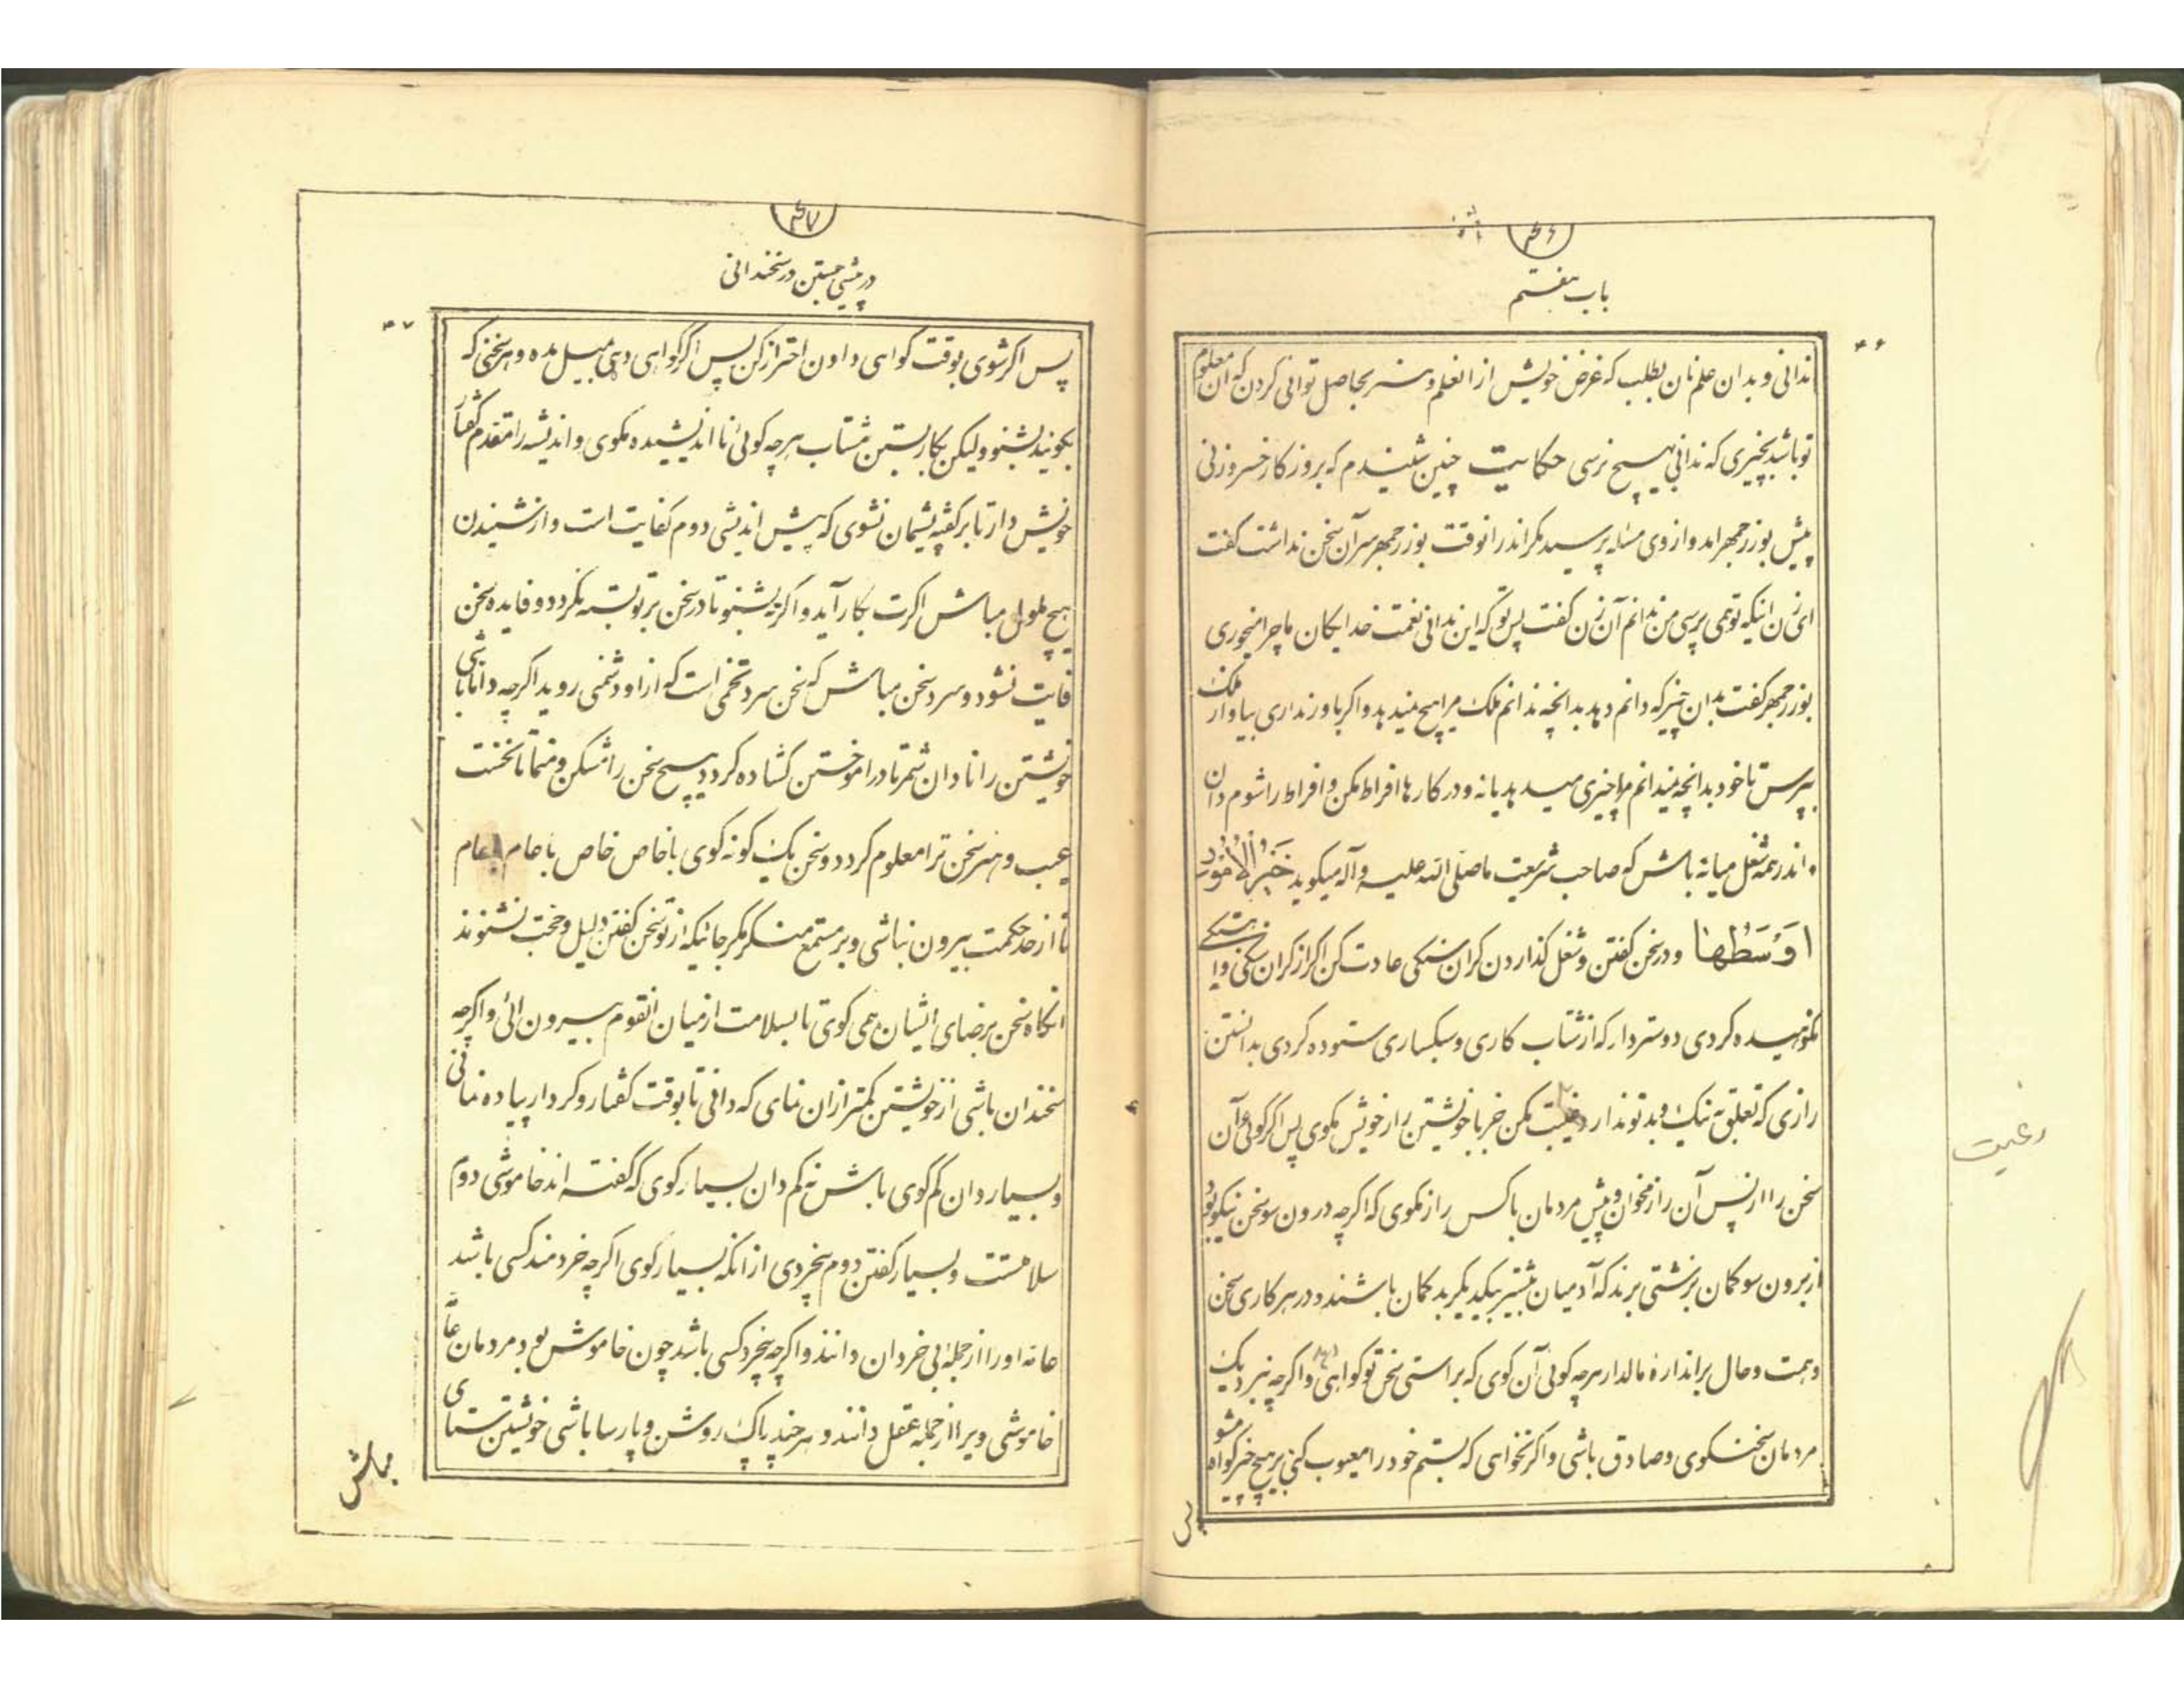 ۴۶
باب هفتم
ندانی و بدان علم نان بطلب که غرض خویش از انعلم و هنر بحاصل توانی کردن که آن معلوم
تو باشد بچیزی که ندانی هیچ نرسی حکایت چنین شنیدم که بروزکار خسرو زنی
پیش بوزرجمهر امد و از وی مسئله پرسید مکر اندر انوقت بوزرجمهر سر آن سخن نداشت کفت
ای زن اینکه تو همی پرسی من ندانم آن زن کفت پس تو که این ندانی نعمت خدایکان ما چرا میخوری
بوزرجمهر کفت بدان چیز که دانم دهد بدانچه ندانم ملک مرا هیچ نمیدهد و اکر باور نداری بیا و از ملک
بپرس تا خود بدانچه نمیدانم مرا چیزی میدهد یا نه و در کارها افراط مکن و افراط را شوم دان
و اندر همه شغل میانه باش که صاحب شریعت ما صلی الله علیه و آله میکوید خَیرُ الاُمُورِ
اَوْسَطُها و در سخن کفتن و شغل کذاردن کران سنکی عادت کن اکر از کران سنکی و اهستکی
نکوهیده کردی دوستر دار که از شتاب کاری و سبکساری ستوده کردی بدانستن
رازی که تعلق به نیک و بد تو ندارد رغبت مکن جز با خویشتن راز خویش مکوی پس اکر کوئی آن
سخن را از پس آن راز مخوان و پیش مردمان با کس راز مکوی که اکر چه درون سو سخن نیکو بود
از برون سو کمان بزشتی برند که آدمیان بیشتر بیکدیکر بد کمان باشند و در هر کاری سخن
و همت و حال بر اندازه مال دار هر چه کوئی آن کوی که بر راستی سخن تو کواهی دهد و اکر چه بنزدیک
مردمان سخنکوی و صادق باشی و اکر نخواهی که بستم خود را معیوب کنی بر هیچ چیز کواه مشو
پس
رغبت
۴۷
در پیشی جستن در سخندانی
پس اکر شوی بوقت کواهی دادن احتراز کن پس اکر کواهی دهی بمیل مده و هر سخنی که
بکویند بشنو و لیکن بکار بستن مشتاب هر چه کوئی نا اندیشیده مکوی و اندیشه را مقدم کفتار
خویش دار تا بر کفته پشیمان نشوی که پیش اندیشی دوم کفایت است و از شنیدن
هیچ ملول مباش اکرت بکار آید و اکر نه بشنو تا در سخن بر تو بسته نکردد و فایده سخن
فایت نشود و سرد سخن مباش که سخن سرد تخمی است که از او دشمنی روید اکر چه دانا باشی
خویشتن را نادان شمر تا در اموختن کشاده کردد هیچ سخن را مشکن و مستا تا نخست
عیب و هنر سخن ترا معلوم کردد و سخن یک کونه کوی با خاص خاص با عام عام
تا از حد حکمت بیرون نباشی و بر مستمع منکر مکر جائیکه از تو سخن کفتن دلیل و حجت نشنوند
انکاه سخن برضای ایشان همی کوی تا بسلامت از میان انقوم بیرون ائی و اکر چه
سخندان باشی از خویشتن کمتر از ان نمای که دانی تا بوقت کفتار و کردار پیاده نمانی
و بسیار دان کم کوی باش نه کم دان بسیار کوی که کفته اند خاموشی دوم
سلامتست و بسیار کفتن دوم بیخردی از انکه بسیار کوی اکر چه خردمند کسی باشد
عامه او را از جمله بی خردان دانند و اکر چه بیخرد کسی باشد چون خاموش بود مردمان عامه
خاموشی ویرا از جمله عقل دانند و هر چند پاک روشن و پارسا باشی خویشتن ستای
مباش